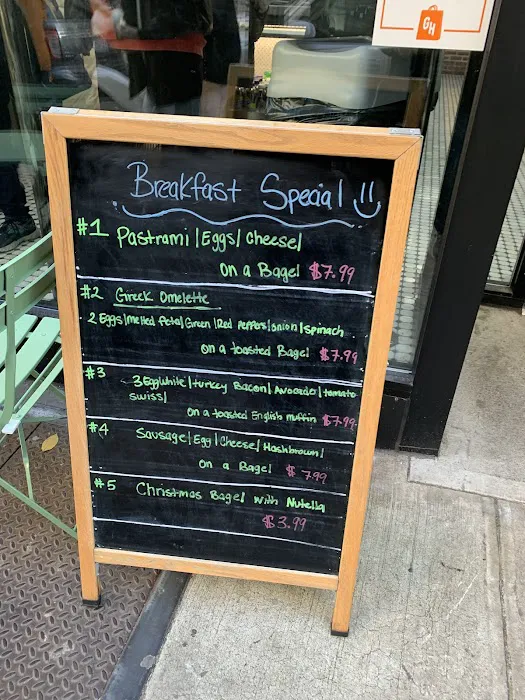 GH
Breakfast Special !!
#1 Pastrami/Eggs/Cheese/
on a Bagel $7.99
#2 Greek Omelette
2 Eggs/melted feta/Green/Red Peppers/onion/spinach
on a toasted Bagel $7.99
#3 3 Eggwhite/turkey Bacon/Avocado/tomato
swiss/
on a toasted English muffin $7.99
#4 Sausage/Egg/Cheese/Hashbrown/
on a Bagel $7.99
#5 Christmas Bagel with Nutella
$3.99